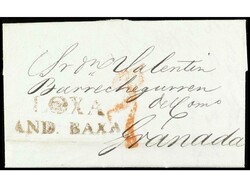 Sr. Dn. Valentin
Barrecheguren
del Como
LOXA
AND. BAXA
Granada